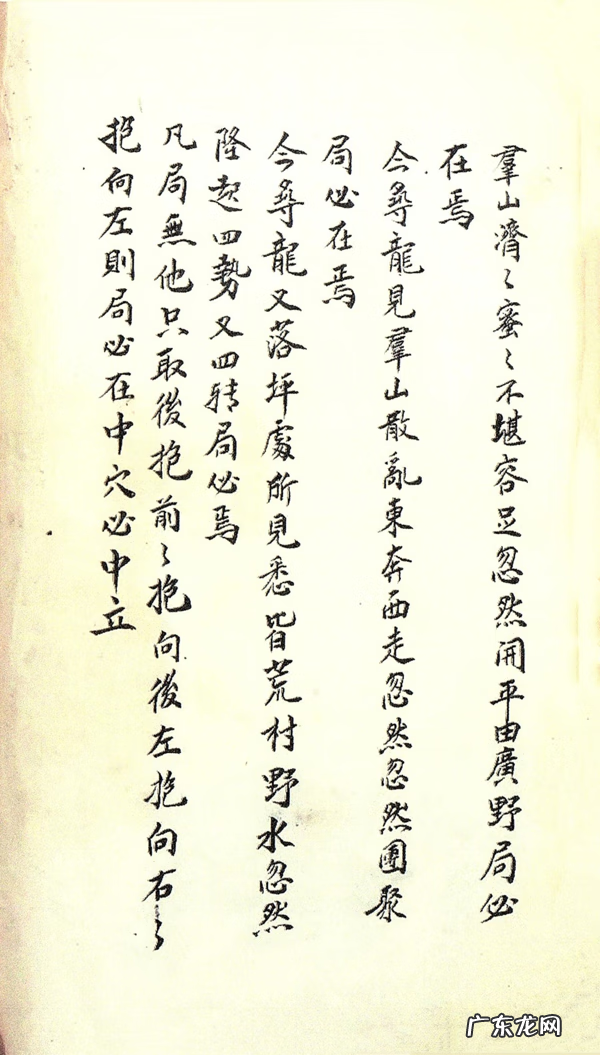 羣山濟〻蜜〻不堪容足忽然開平由廣野局必
在焉
今尋龍見羣山散亂東奔西走忽然忽然團聚
局必在焉
今尋龍又落坪處所見悉皆荒村野水忽然
隆起四勢又四转局必焉
凡局無他只取後抱前〻抱向後左抱向右〻
抱向左則局必在中穴必中立
广东龙网